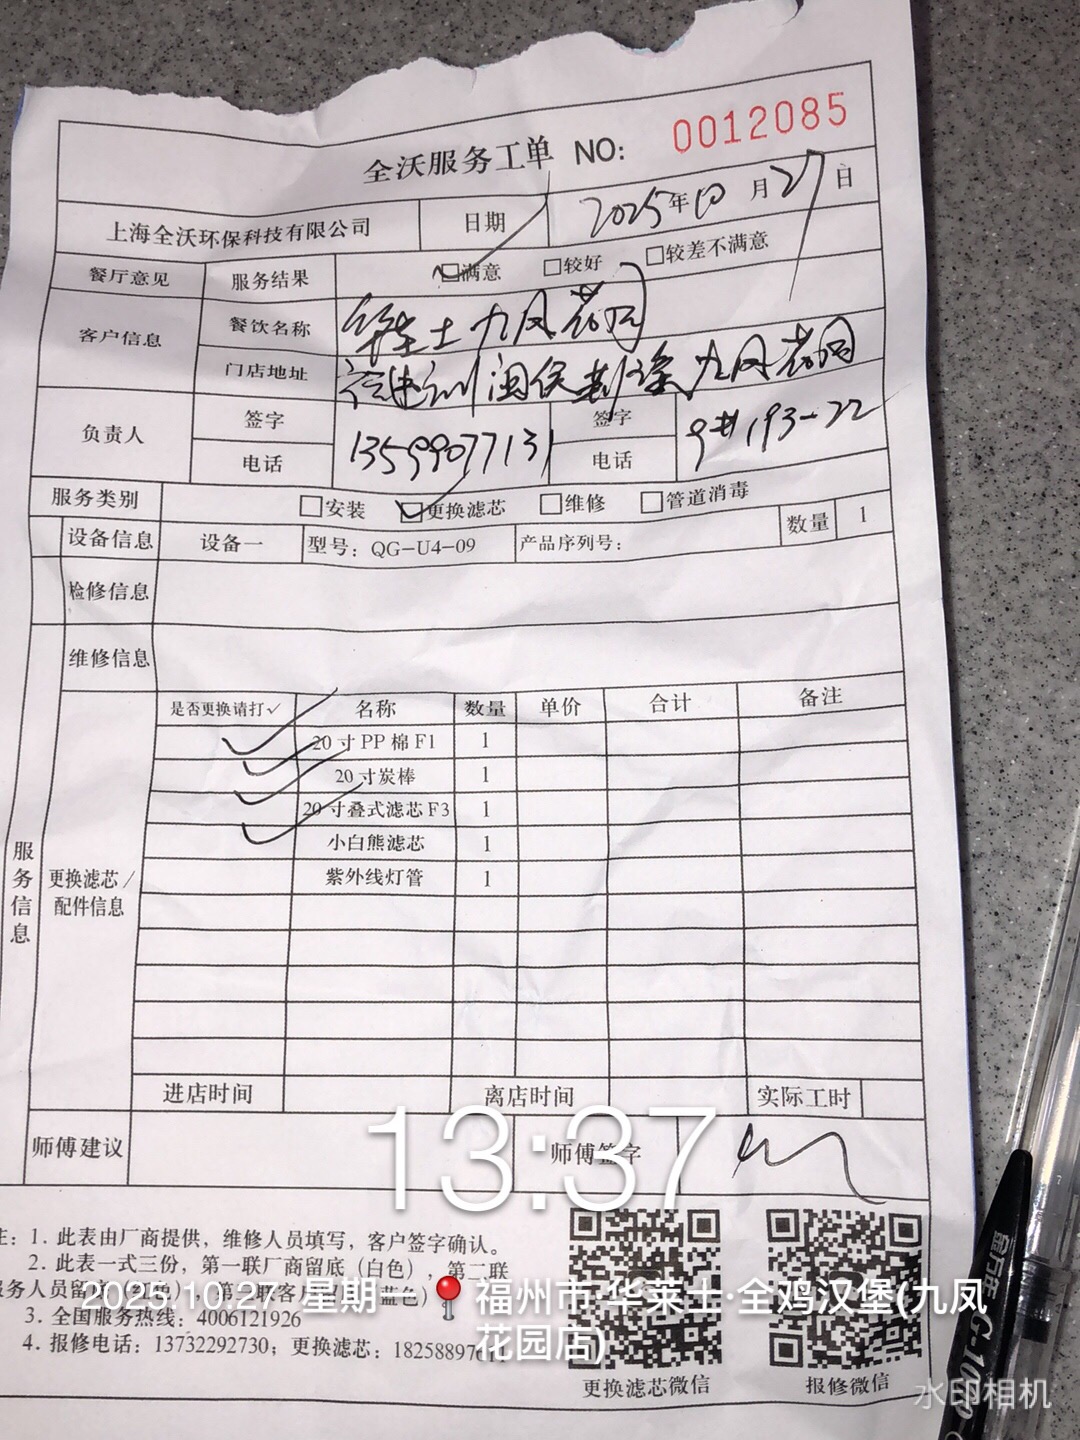 全沃服务工单 NO: 0012085
上海全沃环保科技有限公司 日期 2025年10月27日
餐厅意见 服务结果 ☑满意 □较好 □较差不满意
客户信息 餐饮名称 华莱士九凤花园
门店地址 福建 闽侯荆溪九凤花园
负责人 签字 签字 9#193-22
电话 13599077131 电话
服务类别 □安装 ☑更换滤芯 □维修 □管道消毒
设备信息 设备一 型号：QG-U4-09 产品序列号： 数量 1
检修信息
维修信息
是否更换请打✓ 名称 数量 单价 合计 备注
✓ 20寸PP棉F1 1
✓ 20寸炭棒 1
✓ 20寸叠式滤芯F3 1
✓ 小白熊滤芯 1
紫外线灯管 1
服务信息
更换滤芯/
配件信息
进店时间 离店时间 实际工时
师傅建议 师傅签字
13:37
注：1. 此表由厂商提供，维修人员填写，客户签字确认。
2. 此表一式三份，第一联厂商留底（白色），第二联
服务人员留底（红色）
3. 全国服务热线：4006121926
4. 报修电话：13732292730；更换滤芯：18258897
2025.10.27 星期一 福州市·华莱士·全鸡汉堡(九凤
花园店)
更换滤芯微信 报修微信
水印相机